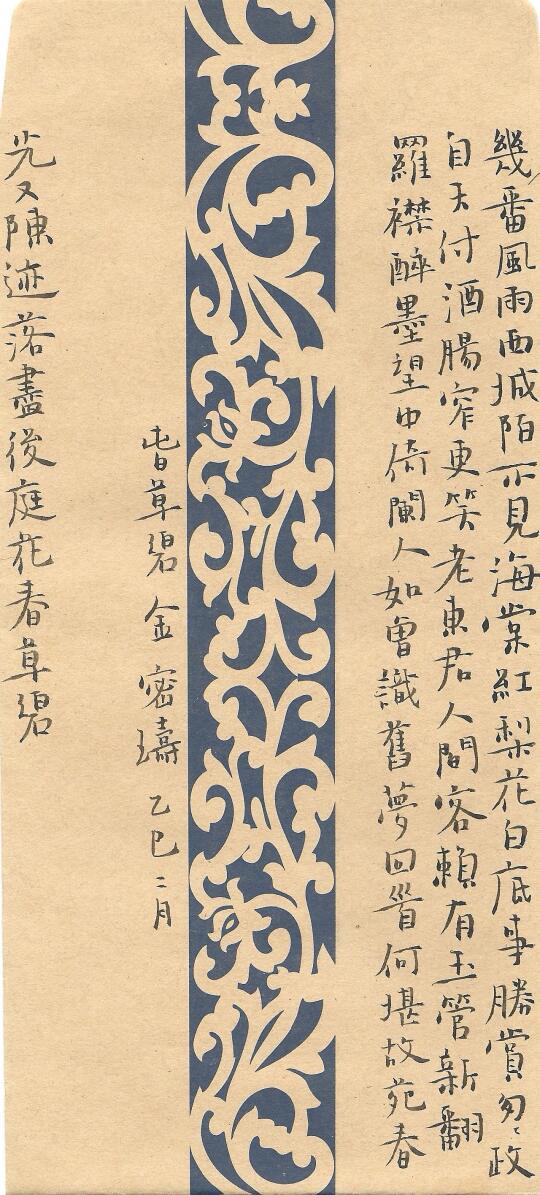 幾番風雨西城陌不見海棠紅梨花白底事勝賞匆〻政
自天付酒腸窄更笑老東君人間客賴有玉管新翻
羅襟醉墨望中倚闌人如曾識舊夢回首何堪故苑春
光又陳迹落盡後庭花春草碧
春草碧 金 密璹 乙巳二月